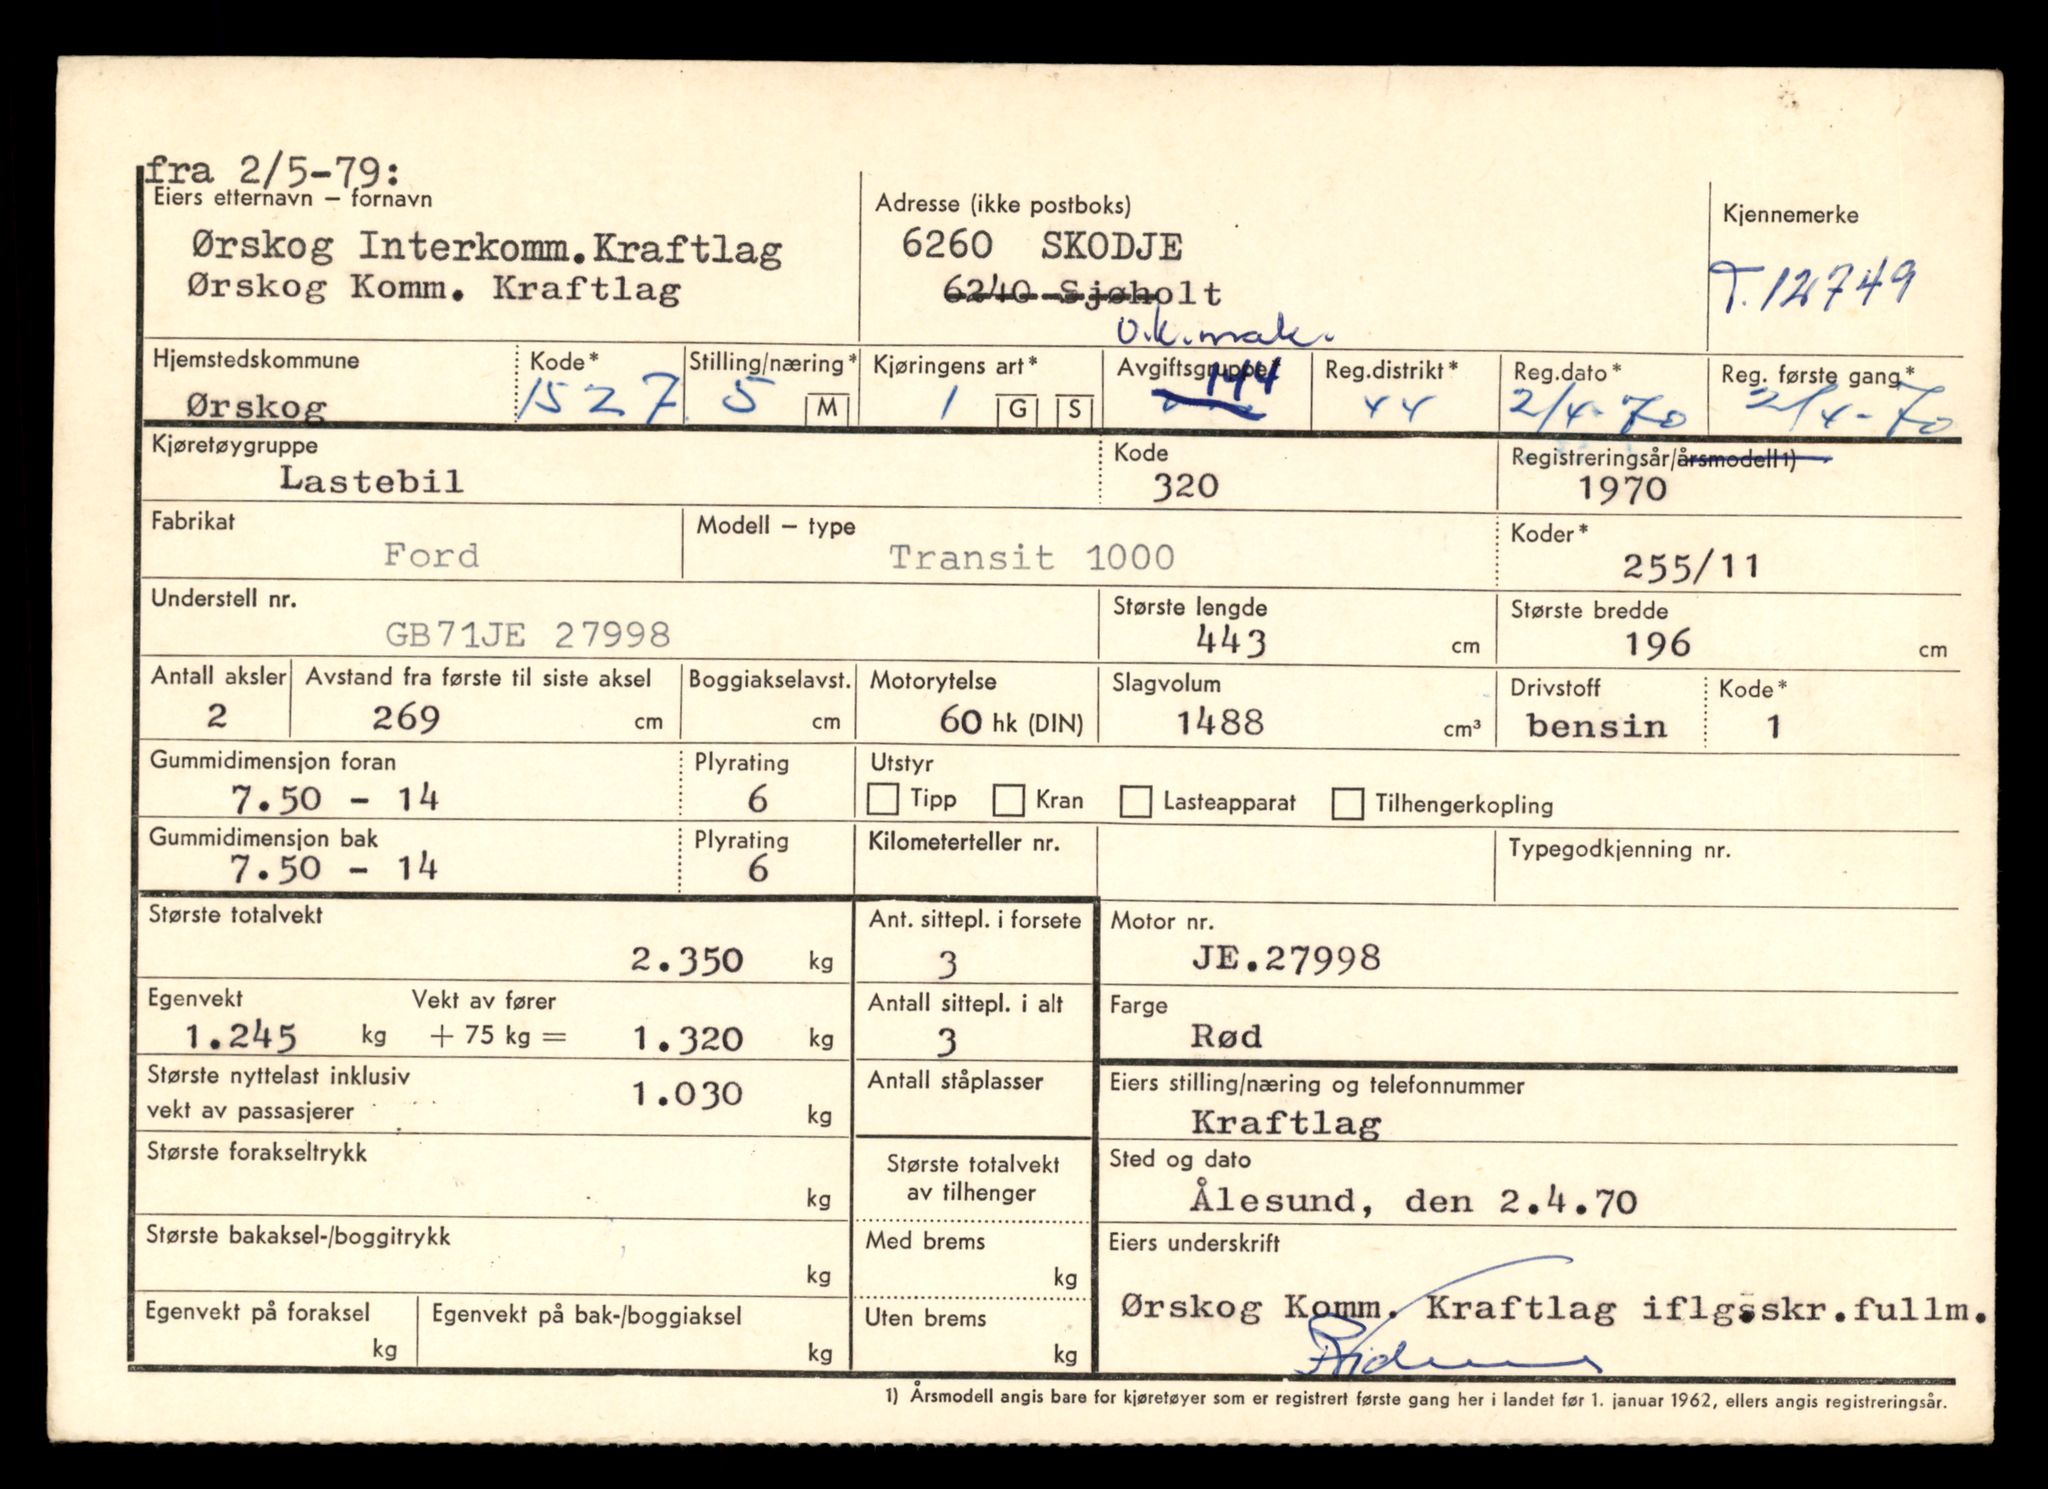 fra 2/5-79:
Eiers etternavn – fornavn
Adresse (ikke postboks)
Kjennemerke
Ørskog Interkomm.Kraftlag
6260 SKODJE
Ørskog Komm. Kraftlag
6240 Sjøholt
T.12749
o.k.mak.
Hjemstedskommune
Kode*
Stilling/næring*
Kjøringens art*
Avgiftsgruppe
Reg.distrikt*
Reg.dato*
Reg. første gang*
Ørskog
1527
5
M
1
G
S
144
44
2/4-70
2/4-70
Kjøretøygruppe
Kode
Registreringsår/årsmodell 1)
Lastebil
320
1970
Fabrikat
Modell – type
Koder*
Ford
Transit 1000
255/11
Understell nr.
Største lengde
Største bredde
GB71JE 27998
443 cm
196 cm
Antall aksler
Avstand fra første til siste aksel
Boggiakselavst.
Motorytelse
Slagvolum
Drivstoff
Kode*
2
269 cm
cm
60 hk (DIN)
1488 cm³
bensin
1
Gummidimensjon foran
Plyrating
Utstyr
7.50 - 14
6
Tipp
Kran
Lasteapparat
Tilhengerkopling
Gummidimensjon bak
Plyrating
Kilometerteller nr.
Typegodkjenning nr.
7.50 - 14
6
Største totalvekt
Ant. sittepl. i forsete
Motor nr.
2.350 kg
3
JE.27998
Egenvekt
Vekt av fører
Antall sittepl. i alt
Farge
1.245 kg + 75 kg = 1.320 kg
3
Rød
Største nyttelast inklusiv
vekt av passasjerer
1.030 kg
Antall ståplasser
Eiers stilling/næring og telefonnummer
Kraftlag
Største forakseltrykk
kg
Største totalvekt
av tilhenger
Sted og dato
Ålesund, den 2.4.70
Største bakaksel-/boggitrykk
kg
Med brems
kg
Eiers underskrift
Ørskog Komm. Kraftlag iflg.skr.fullm.
Egenvekt på foraksel
kg
Egenvekt på bak-/boggiaksel
kg
Uten brems
kg
1) Årsmodell angis bare for kjøretøyer som er registrert første gang her i landet før 1. januar 1962, ellers angis registreringsår.